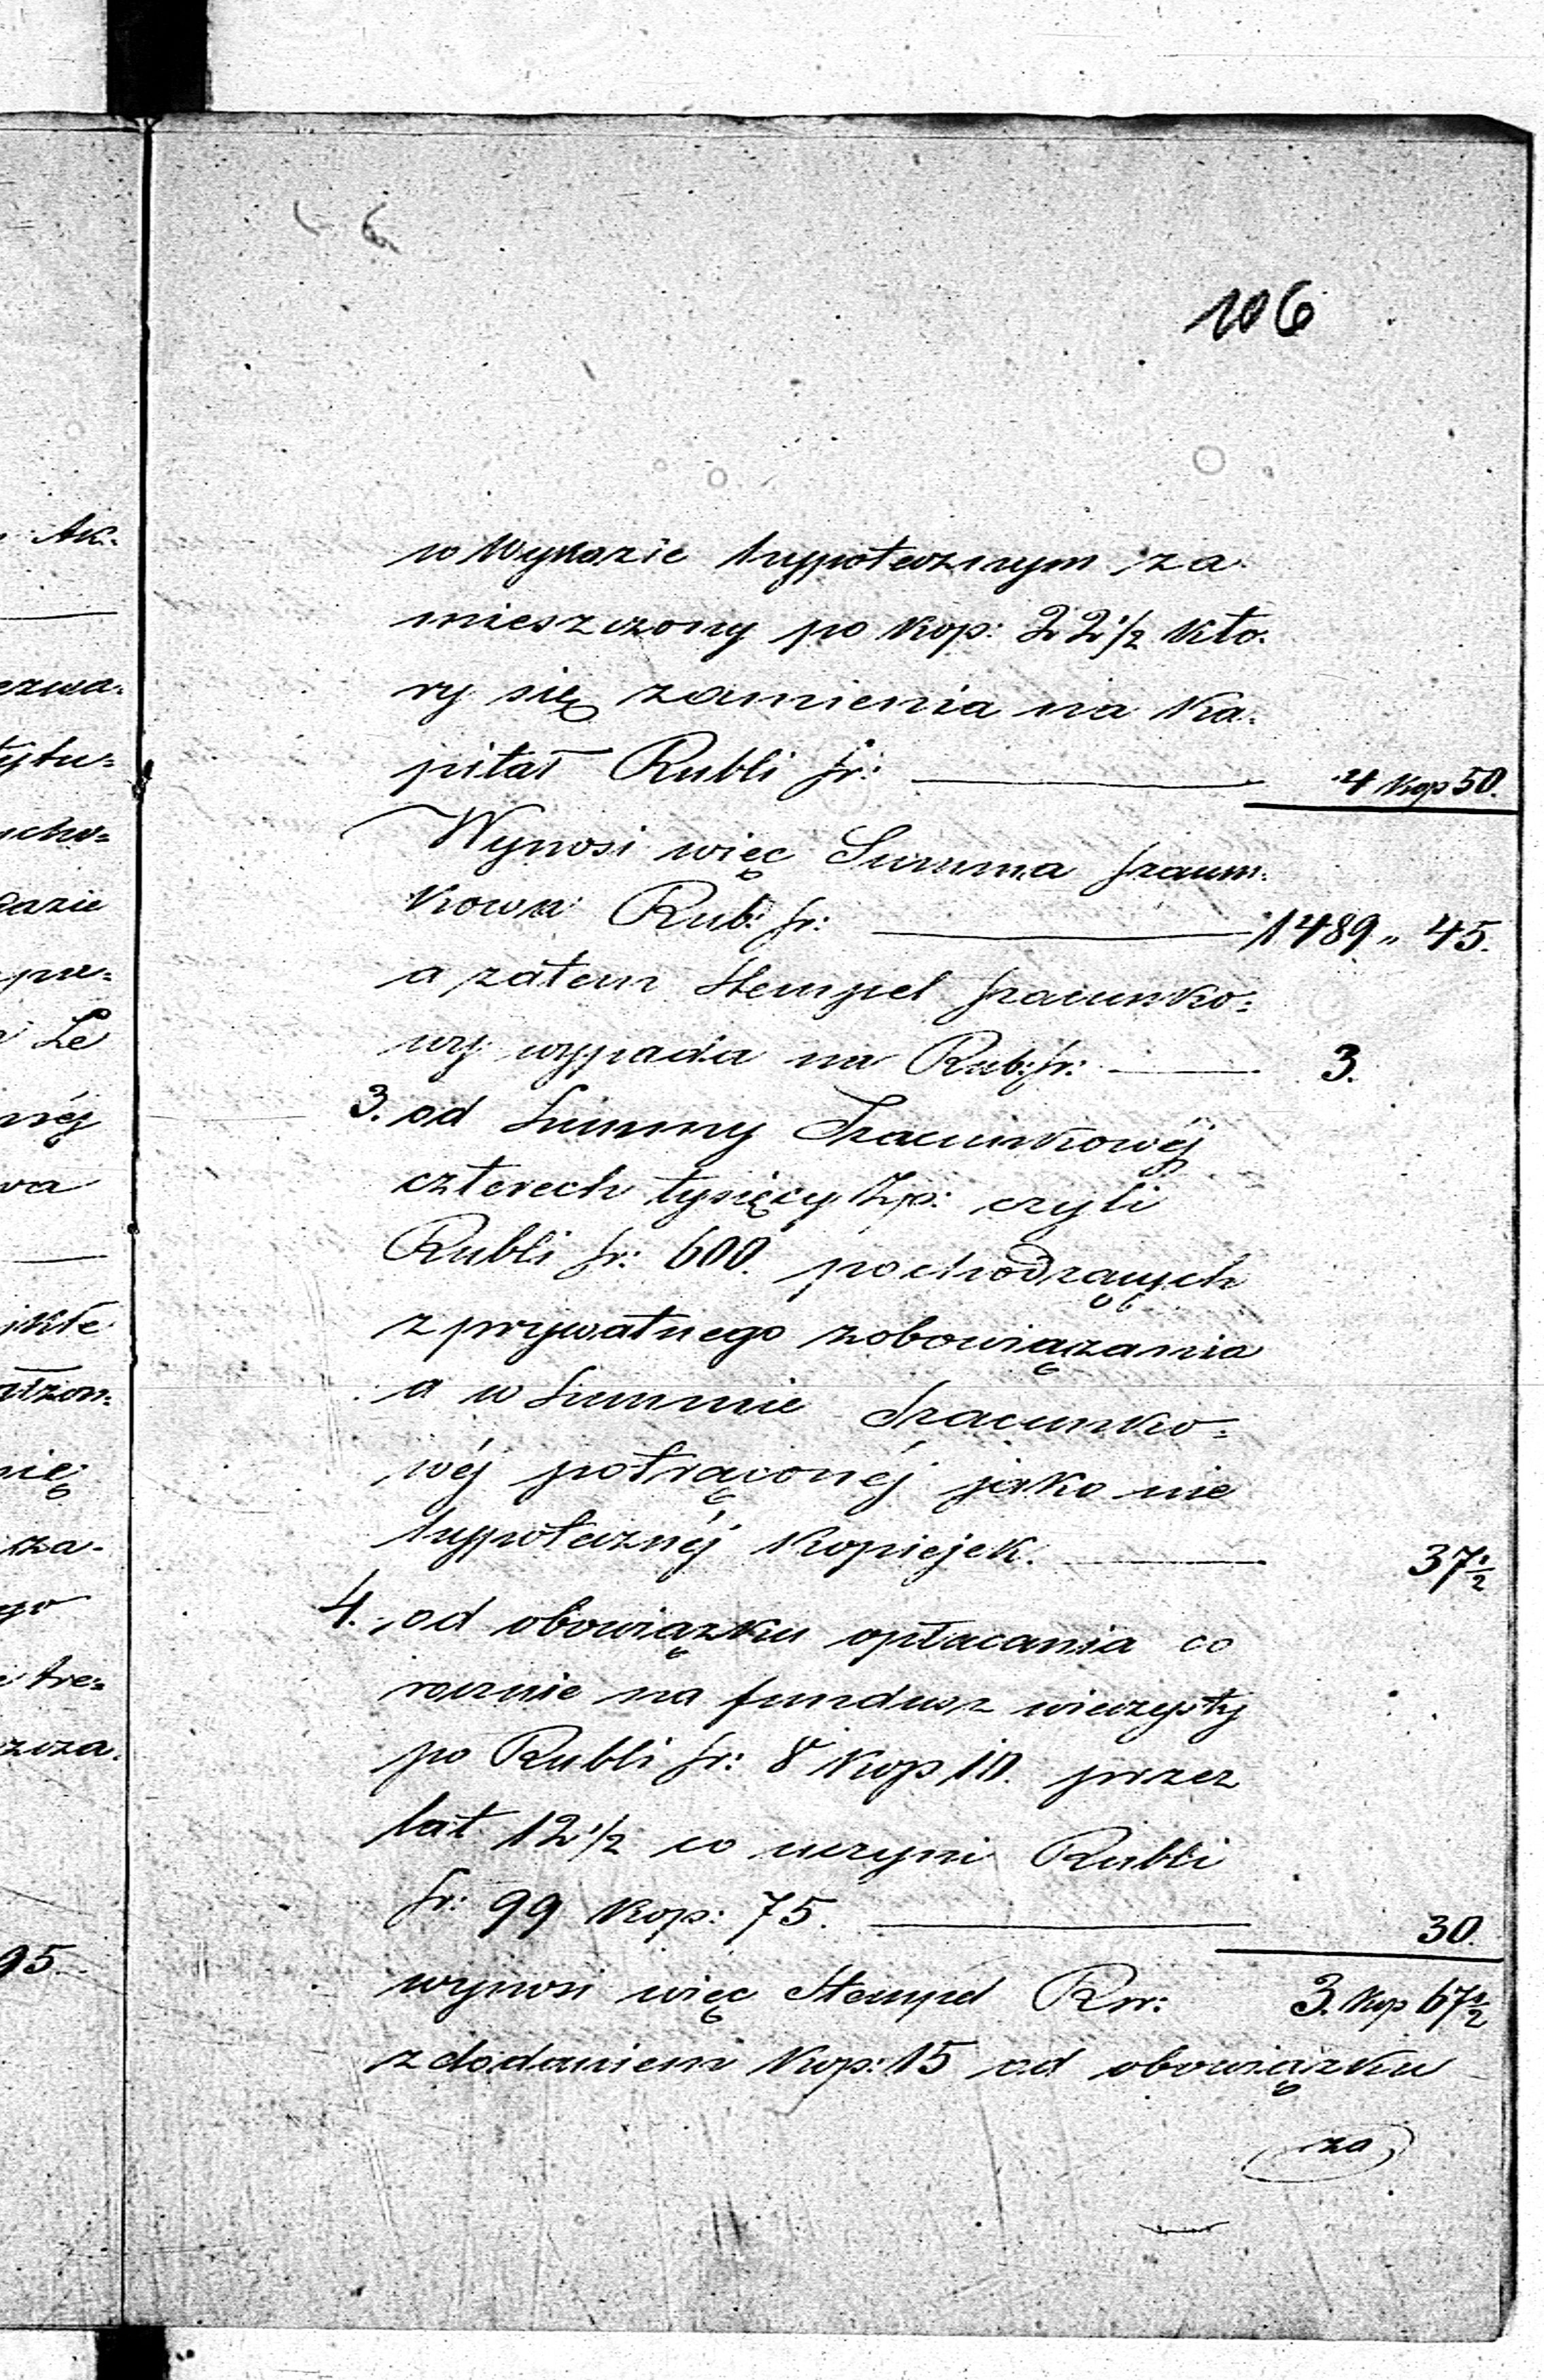 106
w Wykazie hypotecznym za
mieszczony po Kop: 22 1/2 Któ-
ry się zamienia na Ka-
pitał Rubli sr: 4 Kop 50.
Wynosi więc Summa szacun-
kowa Rub: sr: 1489 „ 45.
a zatem Stempel szacunko=
wy wypada na Rub: sr: 3.
3. od Summy Szacunkowéj
czterech tysięcy Zp: czyli
Rubli sr: 600. pochodzących
z prywatnego zobowiązania
a w Summie Szacunko=
wéj potrąconéj jako nie
hypotecznéj Kopiejek. 37 1/2
4. od obowiązku opłacania co
rocznie na fundusz wieczysty
po Rubli sr: 8 Kop 10. przez
lat 12 1/2 co uczyni Rubli
sr: 99 Kop: 75. 30.
wynosi więc Stempel Rsr: 3. Kop 67 1/2
z dodaniem Kop: 15 od obowiązku
za